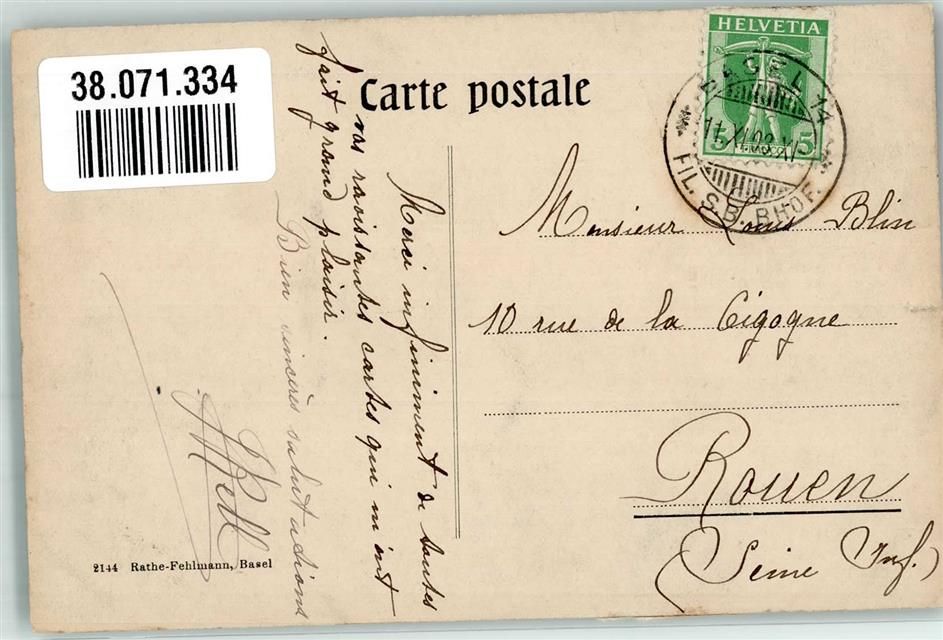 38.071.334
Carte postale
HELVETIA
5 FRANCO 5
BASEL 14
11.XI.08.XI
FIL. S.B. BHOF.
Merci infiniment de toutes
vos ravissantes cartes qui m'ont
fait grand plaisir.
Bien sincères salutations
Monsieur Louis Blin
10 rue de la Cigogne
Rouen
(Seine Inf.)
2144 Rathe-Fehlmann, Basel